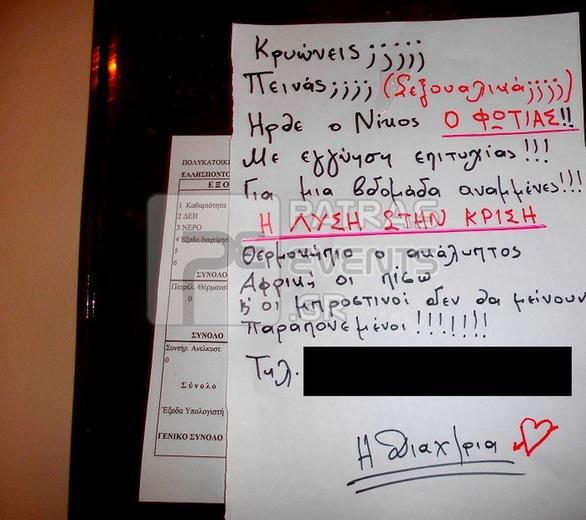 Κρυώνεις;;;;;
Πεινάς;;;; (Σεξουαλικά;;;;)
Ηρθε ο Νίκος Ο ΦΩΤΙΑΣ!!
Με εγγύηση επιτυχίας!!!
Για μια βδομάδα αναμμένες!!!
Η ΛΥΣΗ ΣΤΗΝ ΚΡΙΣΗ
Θερμοκήπιο ο ακάλυπτος
Αφρική οι πίσω
κ' οι μπροστινοί δεν θα μείνουν
παραπονεμένοι!!!!!!!
Τηλ.
Η Διαχ/ρια
ΠΟΛΥΚΑΤΟΙΚ
ΕΛΛΗΣΠΟΝΤΟ
ΕΞΟ
1 Καθαριότητα
2 ΔΕΗ
3 ΝΕΡΟ
4 Εξοδα διαχείρησ
5
6
ΣΥΝΟΛΟ
Πετρέλ. Θέρμανσ
0
ΣΥΝΟΛΟ
Συντήρ. Ανελκυστ.
0
Σύνολο
Έξοδα Υπολογιστή
ΓΕΝΙΚΟ ΣΥΝΟΛΟ
PATRAS
EVENTS
.GR